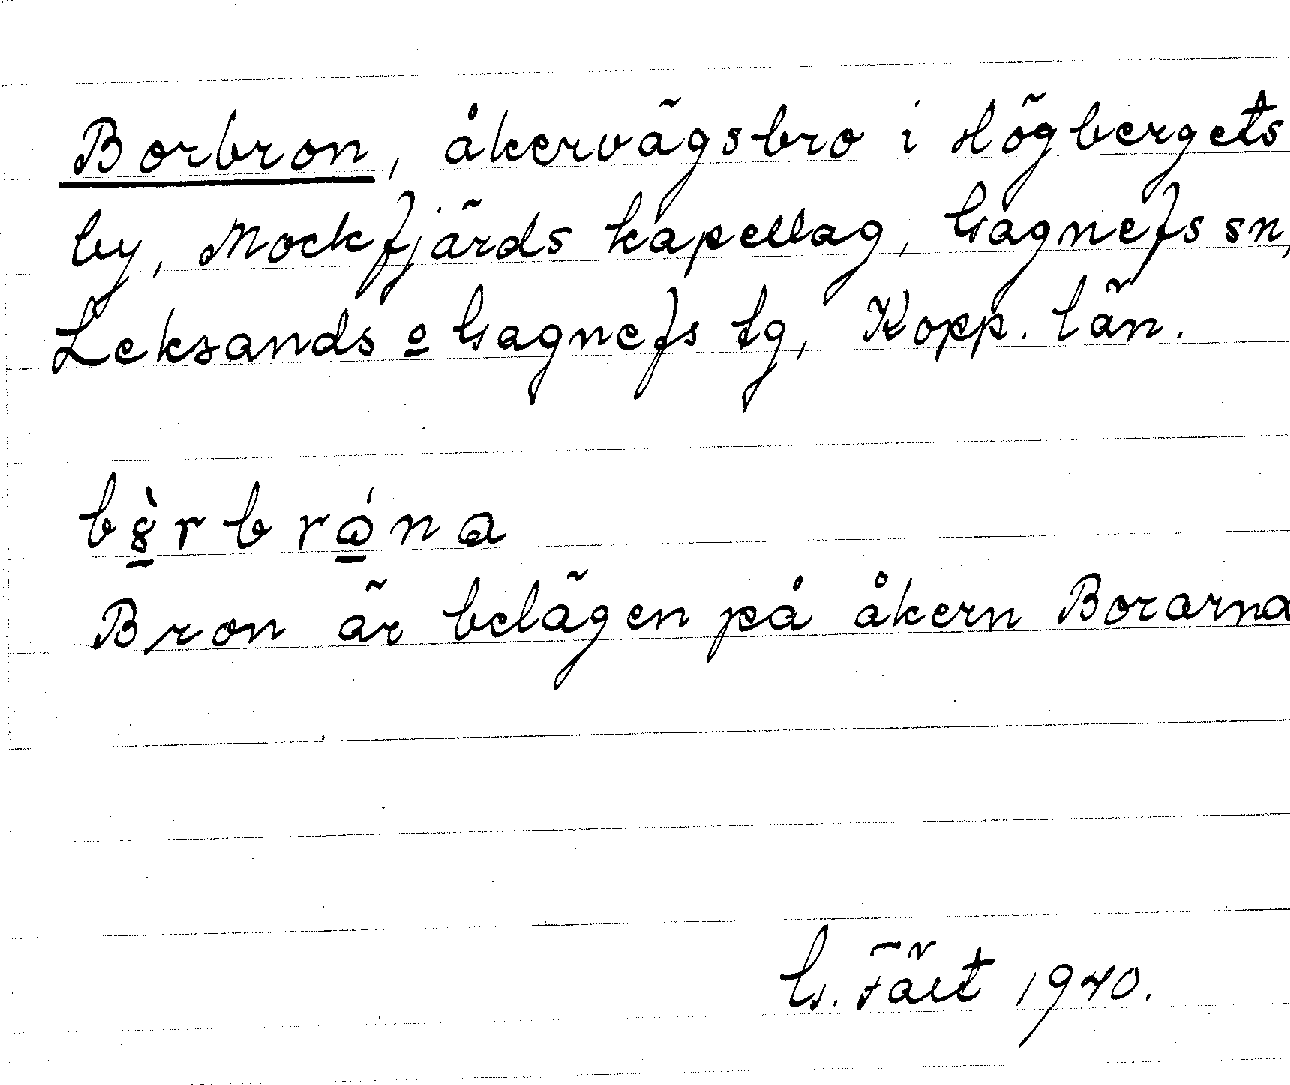 Borbron, åkervägsbro i Högbergets
by, Mockfjärds kapellag, Gagnefs sn,
Leksands o Gagnefs tg, Kopp. län.
Bron är belägen på åkern Borarna
G. Fält 1940.